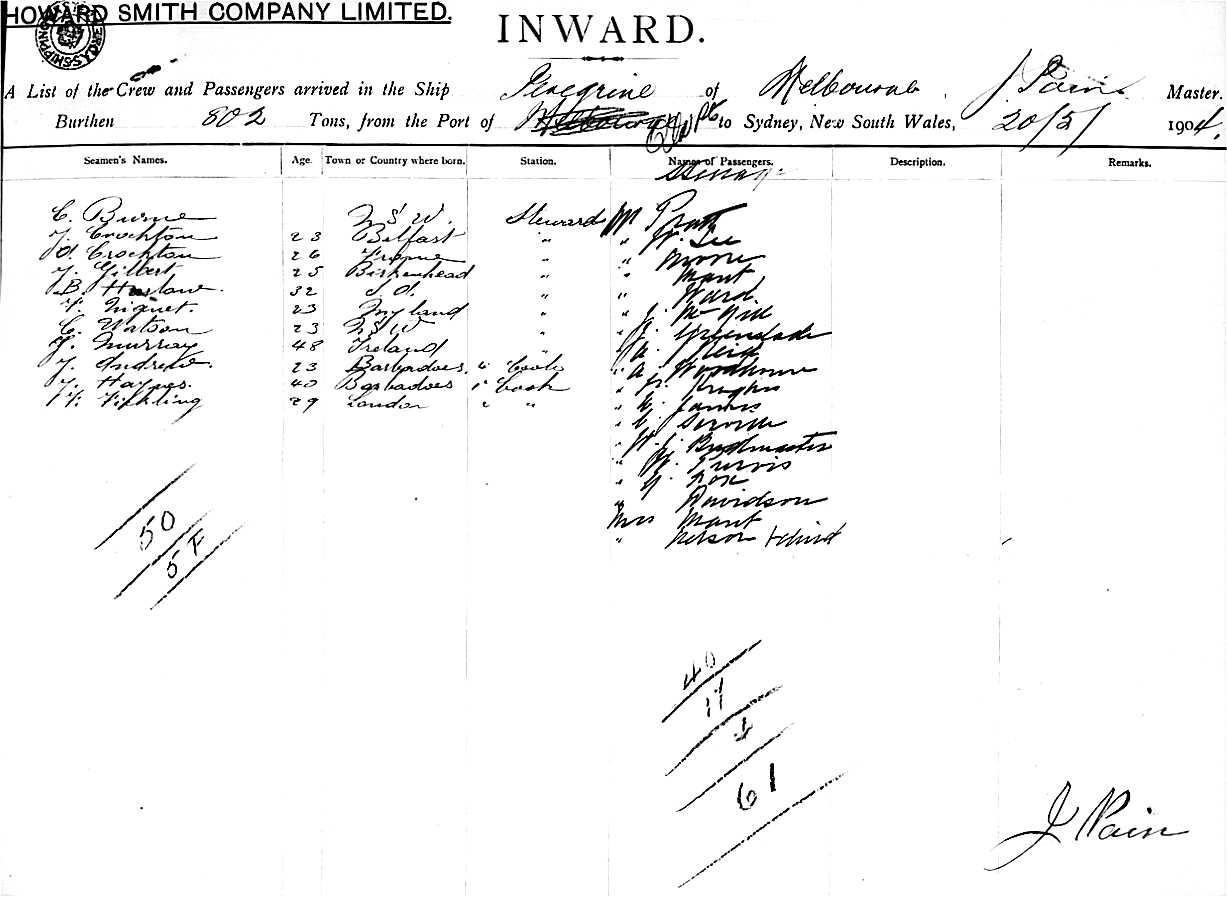 HOWARD SMITH COMPANY LIMITED.
INWARD.
A List of the Crew and Passengers arrived in the Ship Peregrine of Melbourne J Pain Master.
Burthen 802 Tons, from the Port of to Sydney, New South Wales, 20/5/ 1904.
Seamen's Names. Age. Town or Country where born. Station. Names of Passengers. Description. Remarks.
Steerage
C. Burne N S W. Steward Mr Pratt
J. Crochton 23 Belfast " " W. Lee
D. Crochton 26 Frome " " Moore
J. Gilbert 25 Birkenhead " " Mant
B. Haslam. 32 S. A. " " Ward.
23 England " " J. McGill
C. Watson 23 N S W " " Greenslade
J. Murray 48 Ireland " " A. Reid
J. Andrew. 23 Barbadoes. " Cook " A. Woodhouse
J. Haynes. 40 Barbadoes " Cook " Hughes
Fickling 29 London " " " James
"
" W. J. Buckmaster
" W. Purvis
" G. Fox
" Davidson
Mrs Mant
" Nelson & child
50
5 F
40
17
4
61
J Pain